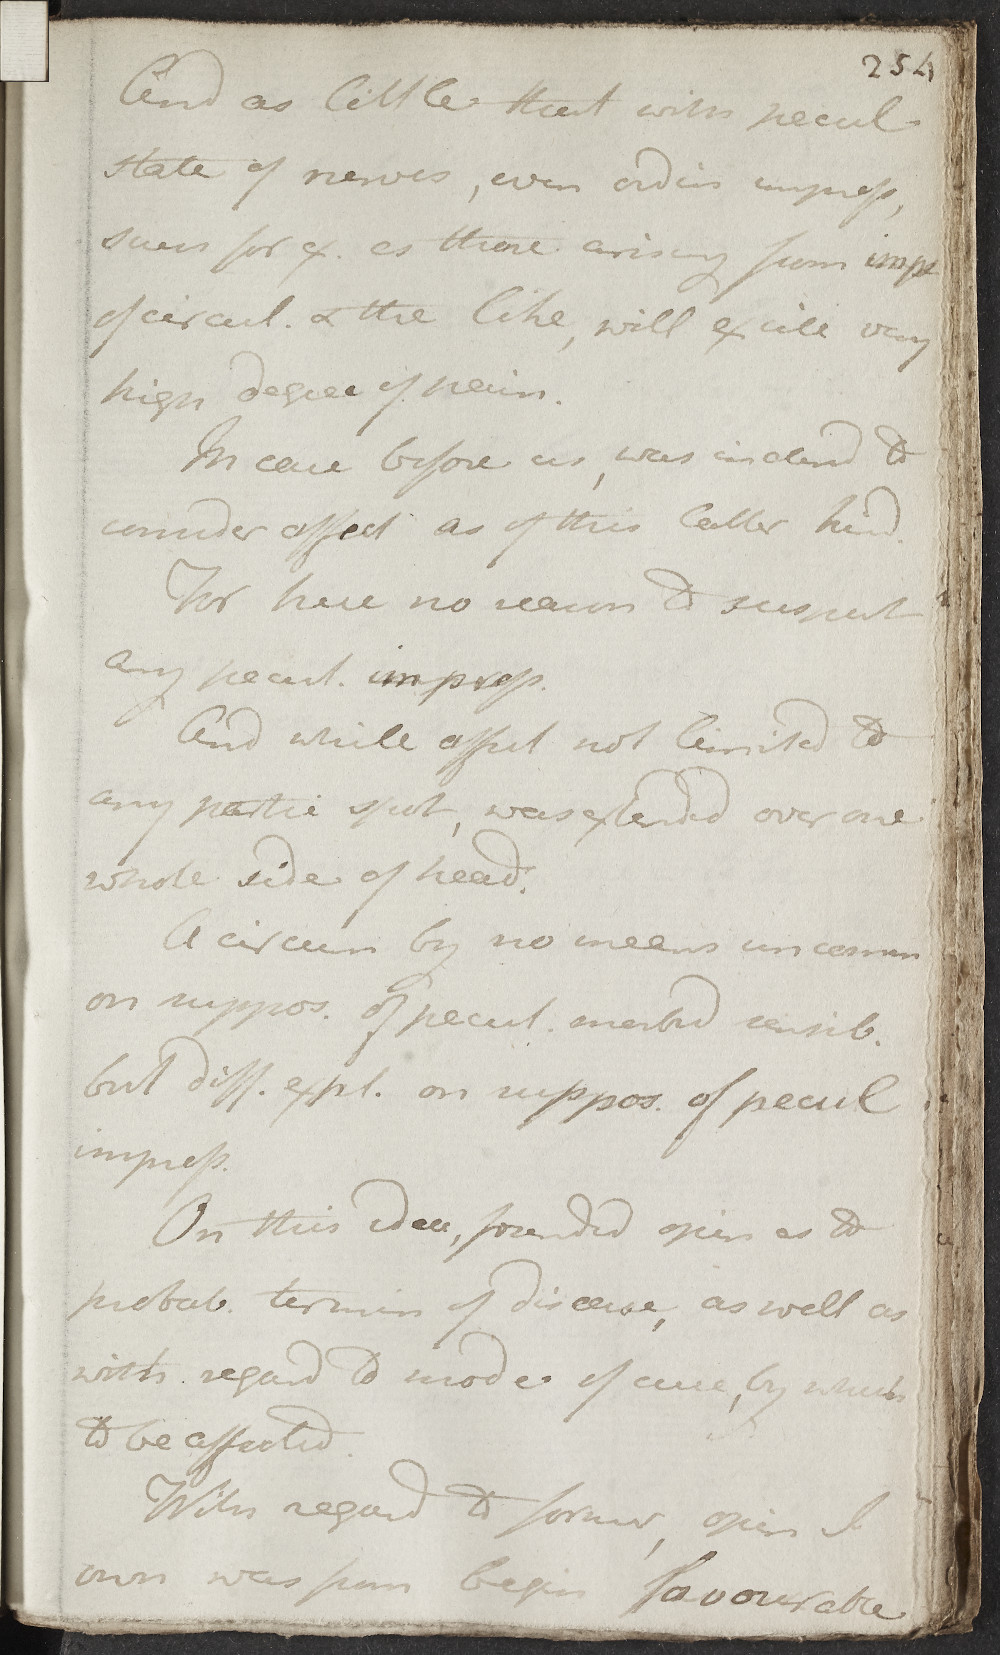 254
And as little that with pecul
state of nerves, even ordin impress,
such for ex. as those arising from impe
of circul. & the like, will excite very
high degree of pain.
In case before us, was inclind to
consider affect as of this latter kind.
For here no reason to suspect
any pecul. impress.
And while affect not limited to
any partic spot, was extended over one
whole side of head.
A circum by no means uncommn
on suppos. of pecul. morbid sensib.
but diff. expl. on suppos. of pecul
impress.
On this idea, founded opin as to
probab. termin of disease, as well as
with regard to mode of cure, by which
to be affected.
With regard to former, opin I
own was from begin favourable